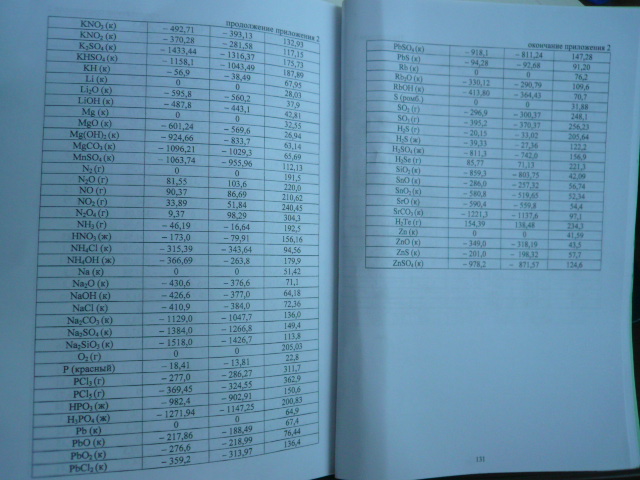 продолжение приложения 2
KNO₃ (к) – 492,71 – 393,13 132,93
KNO₂ (к) – 370,28 – 281,58 117,15
K₂SO₄ (к) – 1433,44 – 1316,37 175,73
KHSO₄ (к) – 1158,1 – 1043,49 187,89
KH (к) – 56,9 – 38,49 67,95
Li (к) 0 0 28,03
Li₂O (к) – 595,8 – 560,2 37,9
LiOH (к) – 487,8 – 443,1 42,81
Mg (к) 0 0 32,55
MgO (к) – 601,24 – 569,6 26,94
Mg(OH)₂ (к) – 924,66 – 833,7 63,14
MgCO₃ (к) – 1096,21 – 1029,3 65,69
MnSO₄ (к) – 1063,74 – 955,96 112,13
N₂ (г) 0 0 191,5
N₂O (г) 81,55 103,6 220,0
NO (г) 90,37 86,69 210,62
NO₂ (г) 33,89 51,84 240,45
N₂O₄ (г) 9,37 98,29 304,3
NH₃ (г) – 46,19 – 16,64 192,5
HNO₃ (ж) – 173,0 – 79,91 156,16
NH₄Cl (к) – 315,39 – 343,64 94,56
NH₄OH (ж) – 366,69 – 263,8 179,9
Na (к) 0 0 51,42
Na₂O (к) – 430,6 – 376,6 71,1
NaOH (к) – 426,6 – 377,0 64,18
NaCl (к) – 410,9 – 384,0 72,36
Na₂CO₃ (к) – 1129,0 – 1047,7 136,0
Na₂SO₄ (к) – 1384,0 – 1266,8 149,4
Na₂SiO₃ (к) – 1518,0 – 1426,7 113,8
O₂ (г) 0 0 205,03
P (красный) – 18,41 – 13,81 22,8
PCl₃ (г) – 277,0 – 286,27 311,7
PCl₅ (г) – 369,45 – 324,55 362,9
HPO₃ (ж) – 982,4 – 902,91 150,6
H₃PO₄ (ж) – 1271,94 – 1147,25 200,83
Pb (к) 0 0 64,9
PbO (к) – 217,86 – 188,49 67,4
PbO₂ (к) – 276,6 – 218,99 76,44
PbCl₂ (к) – 359,2 – 313,97 136,4
окончание приложения 2
PbSO₄ (к) – 918,1 – 811,24 147,28
PbS (к) – 94,28 – 92,68 91,20
Rb (к) 0 0 76,2
Rb₂O (к) – 330,12 – 290,79 109,6
RbOH (к) – 413,80 – 364,43 70,7
S (ромб.) 0 0 31,88
SO₂ (г) – 296,9 – 300,37 248,1
SO₃ (г) – 395,2 – 370,37 256,23
H₂S (г) – 20,15 – 33,02 205,64
H₂S (ж) – 39,33 – 27,36 122,2
H₂SO₄ (ж) – 811,3 – 742,0 156,9
H₂Se (г) 85,77 71,13 221,3
SiO₂ (к) – 859,3 – 803,75 42,09
SnO (к) – 286,0 – 257,32 56,74
SnO₂ (к) – 580,8 – 519,65 52,34
SrO (к) – 590,4 – 559,8 54,4
SrCO₃ (к) – 1221,3 – 1137,6 97,1
H₂Te (г) 154,39 138,48 234,3
Zn (к) 0 0 41,59
ZnO (к) – 349,0 – 318,19 43,5
ZnS (к) – 201,0 – 198,32 57,7
ZnSO₄ (к) – 978,2 – 871,57 124,6
131